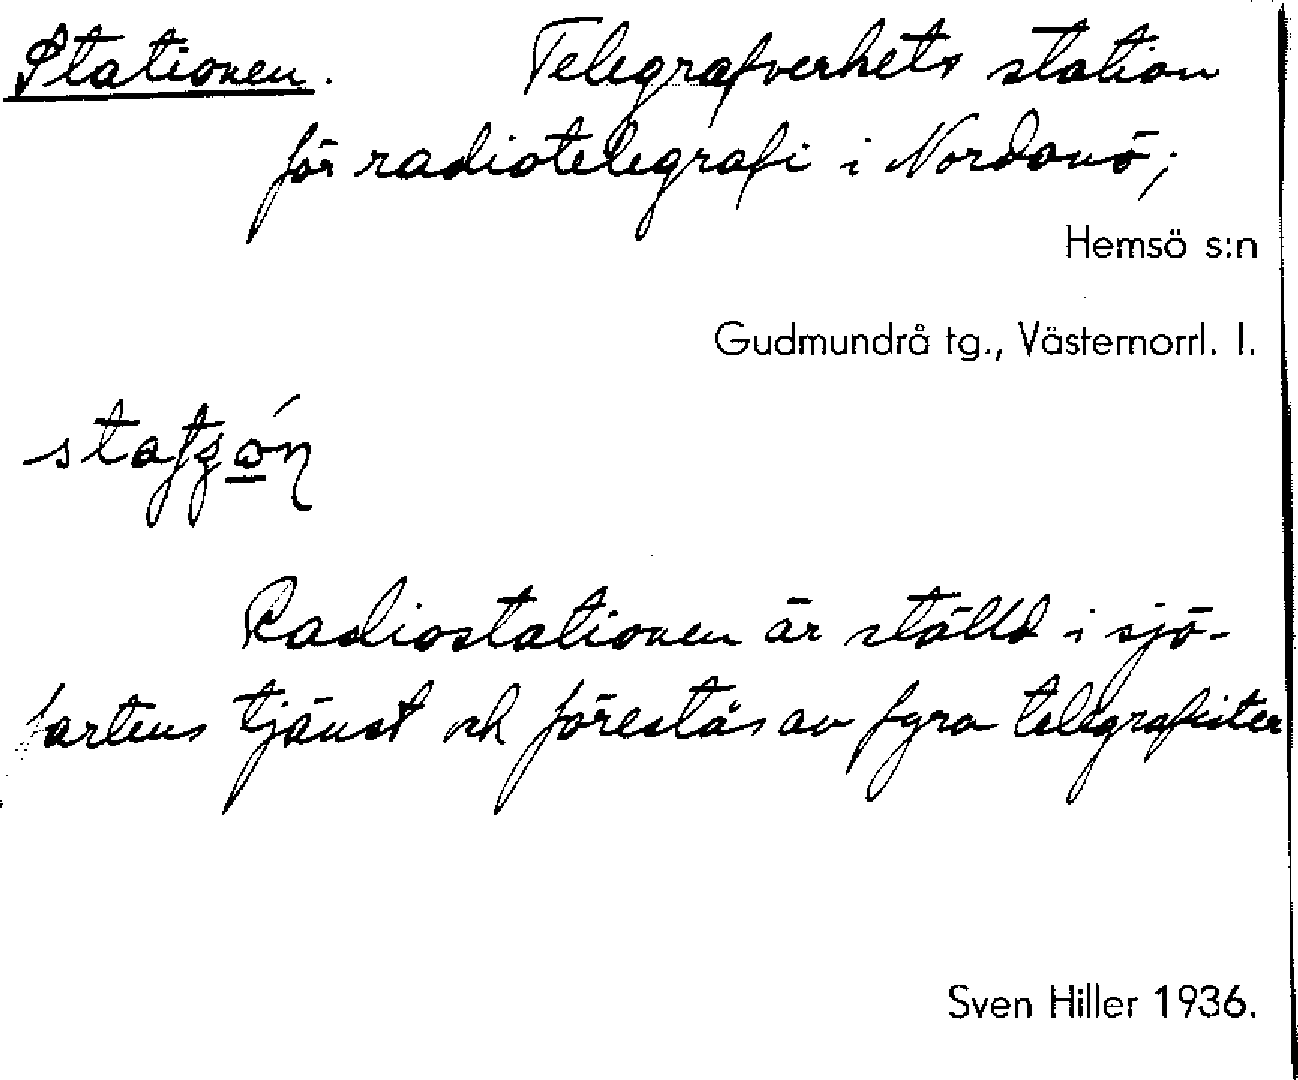 Stationen. Telegrafverkets station
för radiotelegrafi i Nordanö;
Hemsö s:n
Gudmundrå tg., Västernorrl. l.
Radiostationen är ställd i sjö-
fartens tjänst och förestås av fyra telegrafister
Sven Hiller 1936.